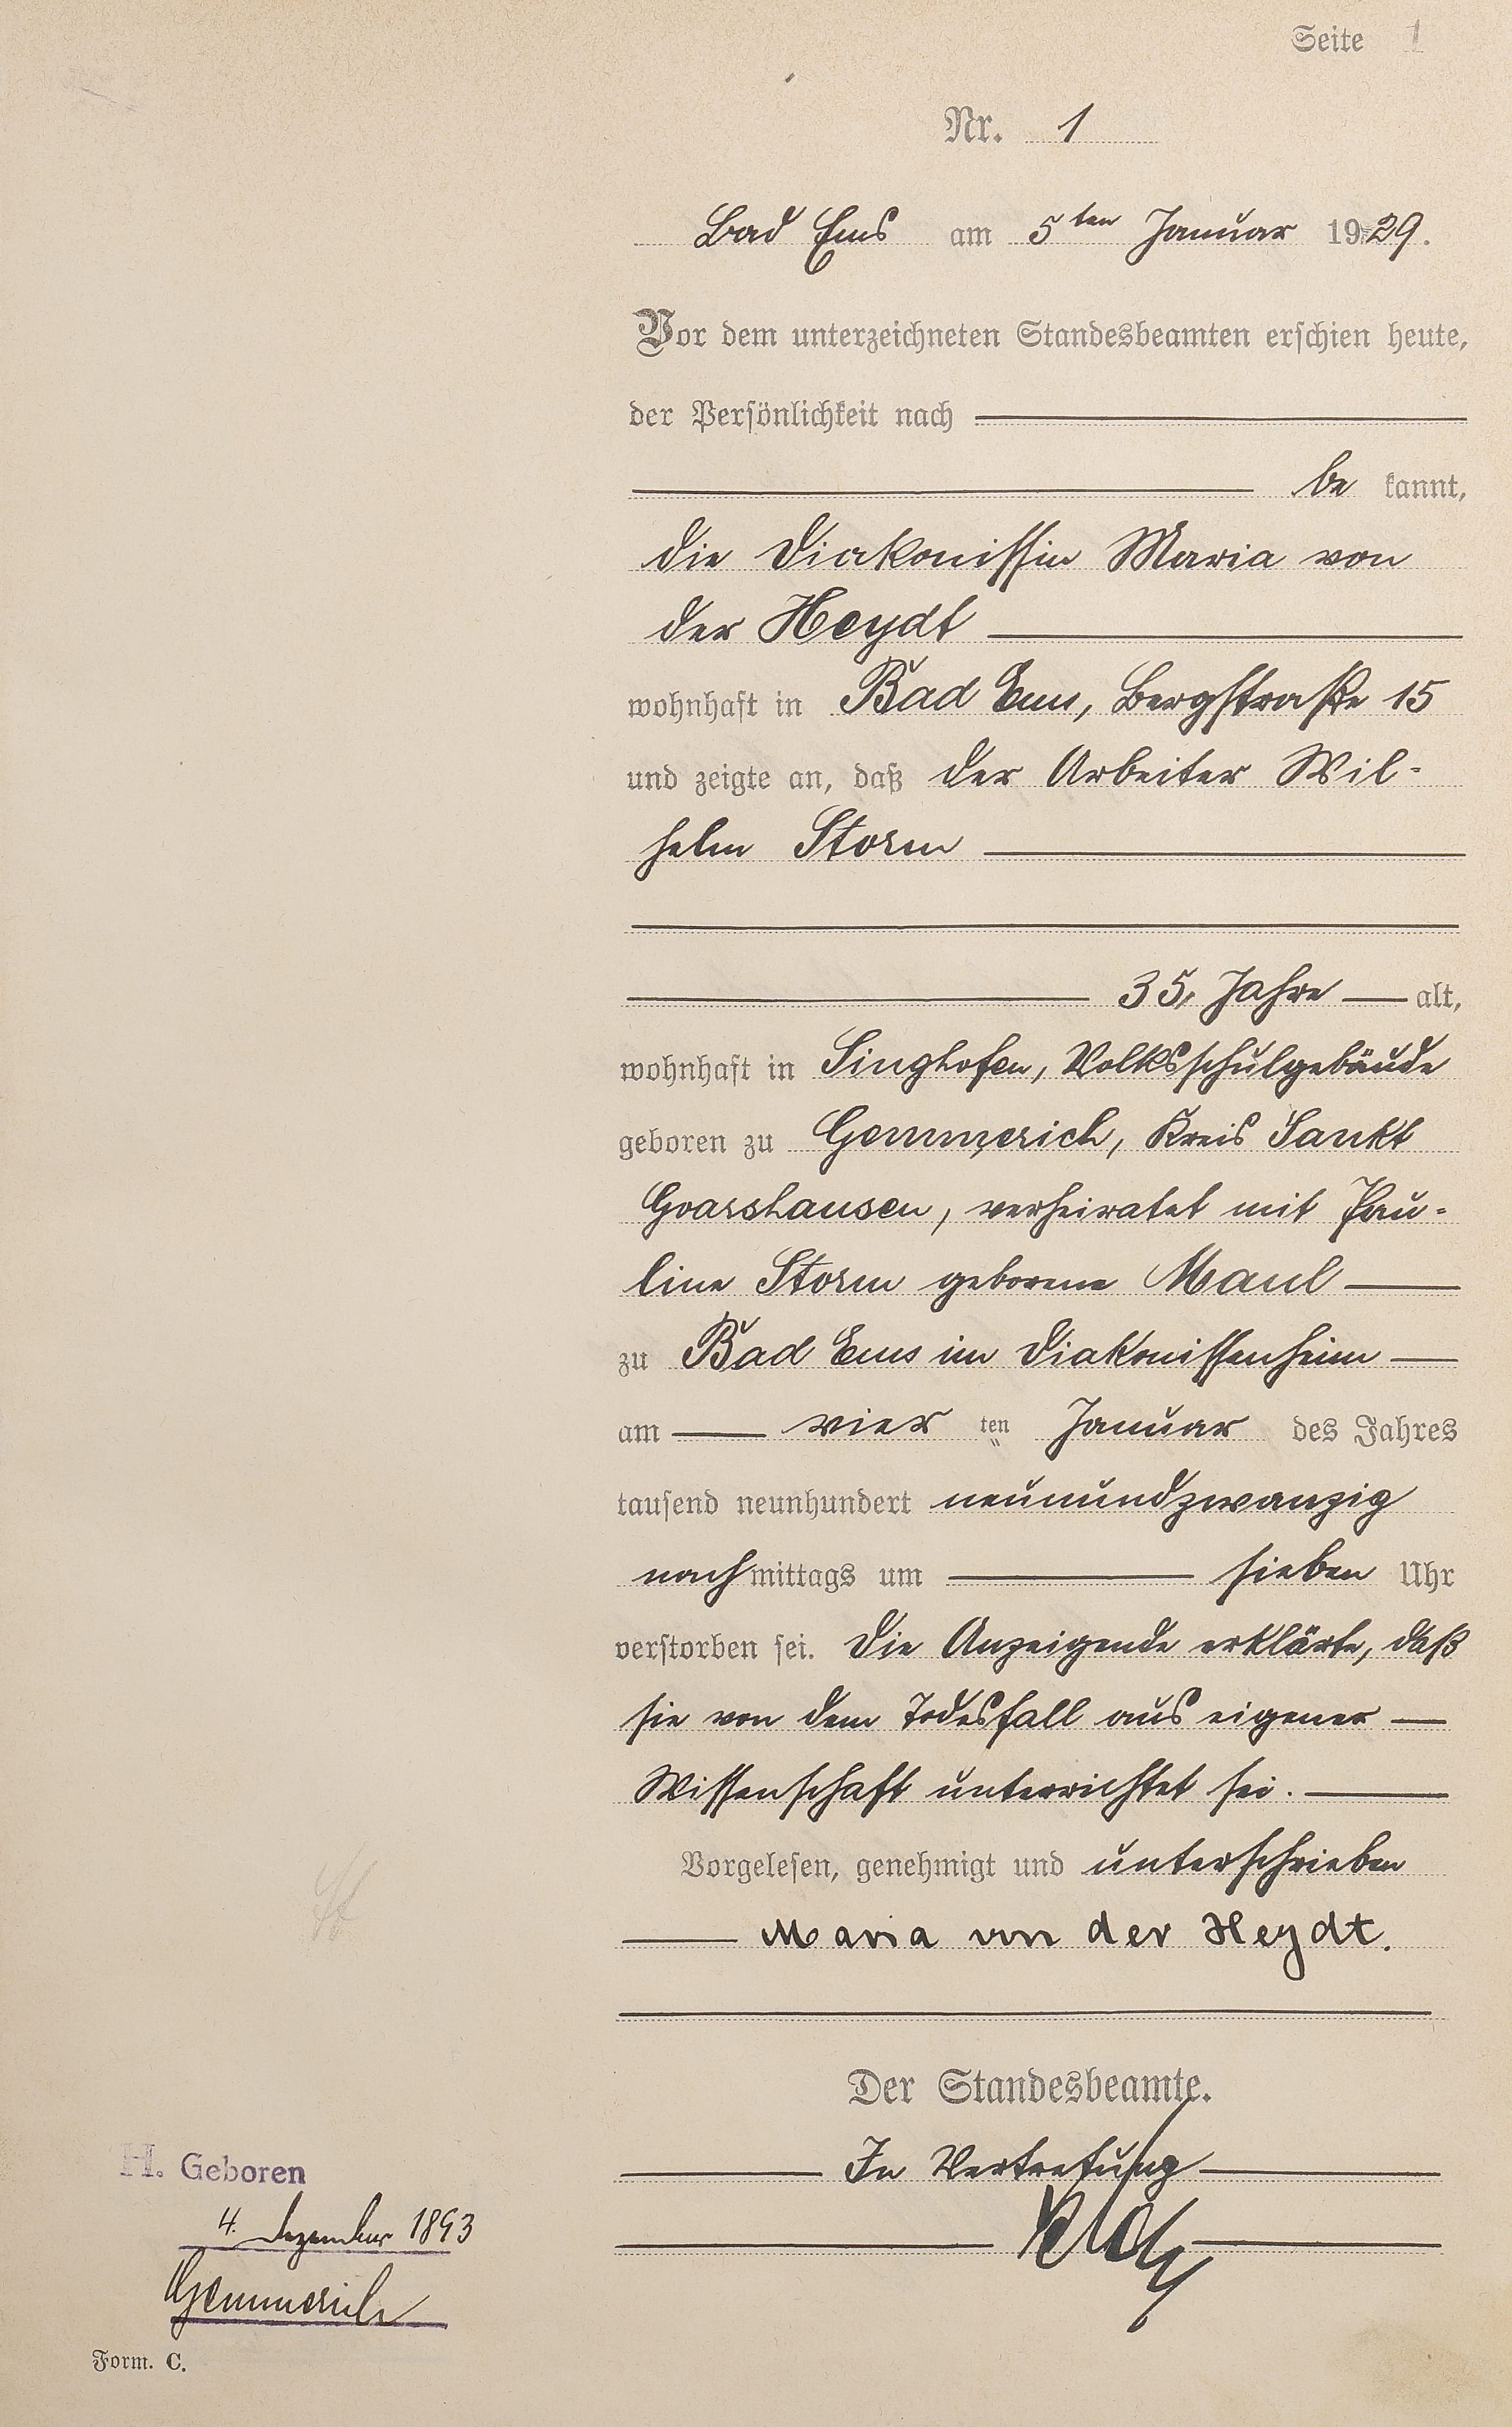 Seite 1
Nr. 1
Bad Ems am 5ten Januar 1929.
Vor dem unterzeichneten Standesbeamten erschien heute,
der Persönlichkeit nach
be kannt,
die Diakonissin Maria von
der Heydt
wohnhaft in Bad Ems, Bergstraße 15
und zeigte an, daß der Arbeiter Wil-
helm Storm
35 Jahre alt,
wohnhaft in Singhofen, Volksschulgebäude
geboren zu Gemmerich, Kreis Sankt
Goarshausen, verheiratet mit Pau-
line Storm geborene Maul
zu Bad Ems im Diakonissenheim
am vier ten Januar des Jahres
tausend neunhundert neunundzwanzig
nachmittags um sieben Uhr
verstorben sei. Die Anzeigende erklärte, daß
sie von dem Todesfall aus eigener
Wissenschaft unterrichtet sei.
Vorgelesen, genehmigt und unterschrieben
Maria von der Heydt.
Der Standesbeamte.
In Vertretung
H. Geboren
4. Dezember 1893
Gemmerich
Form. C.